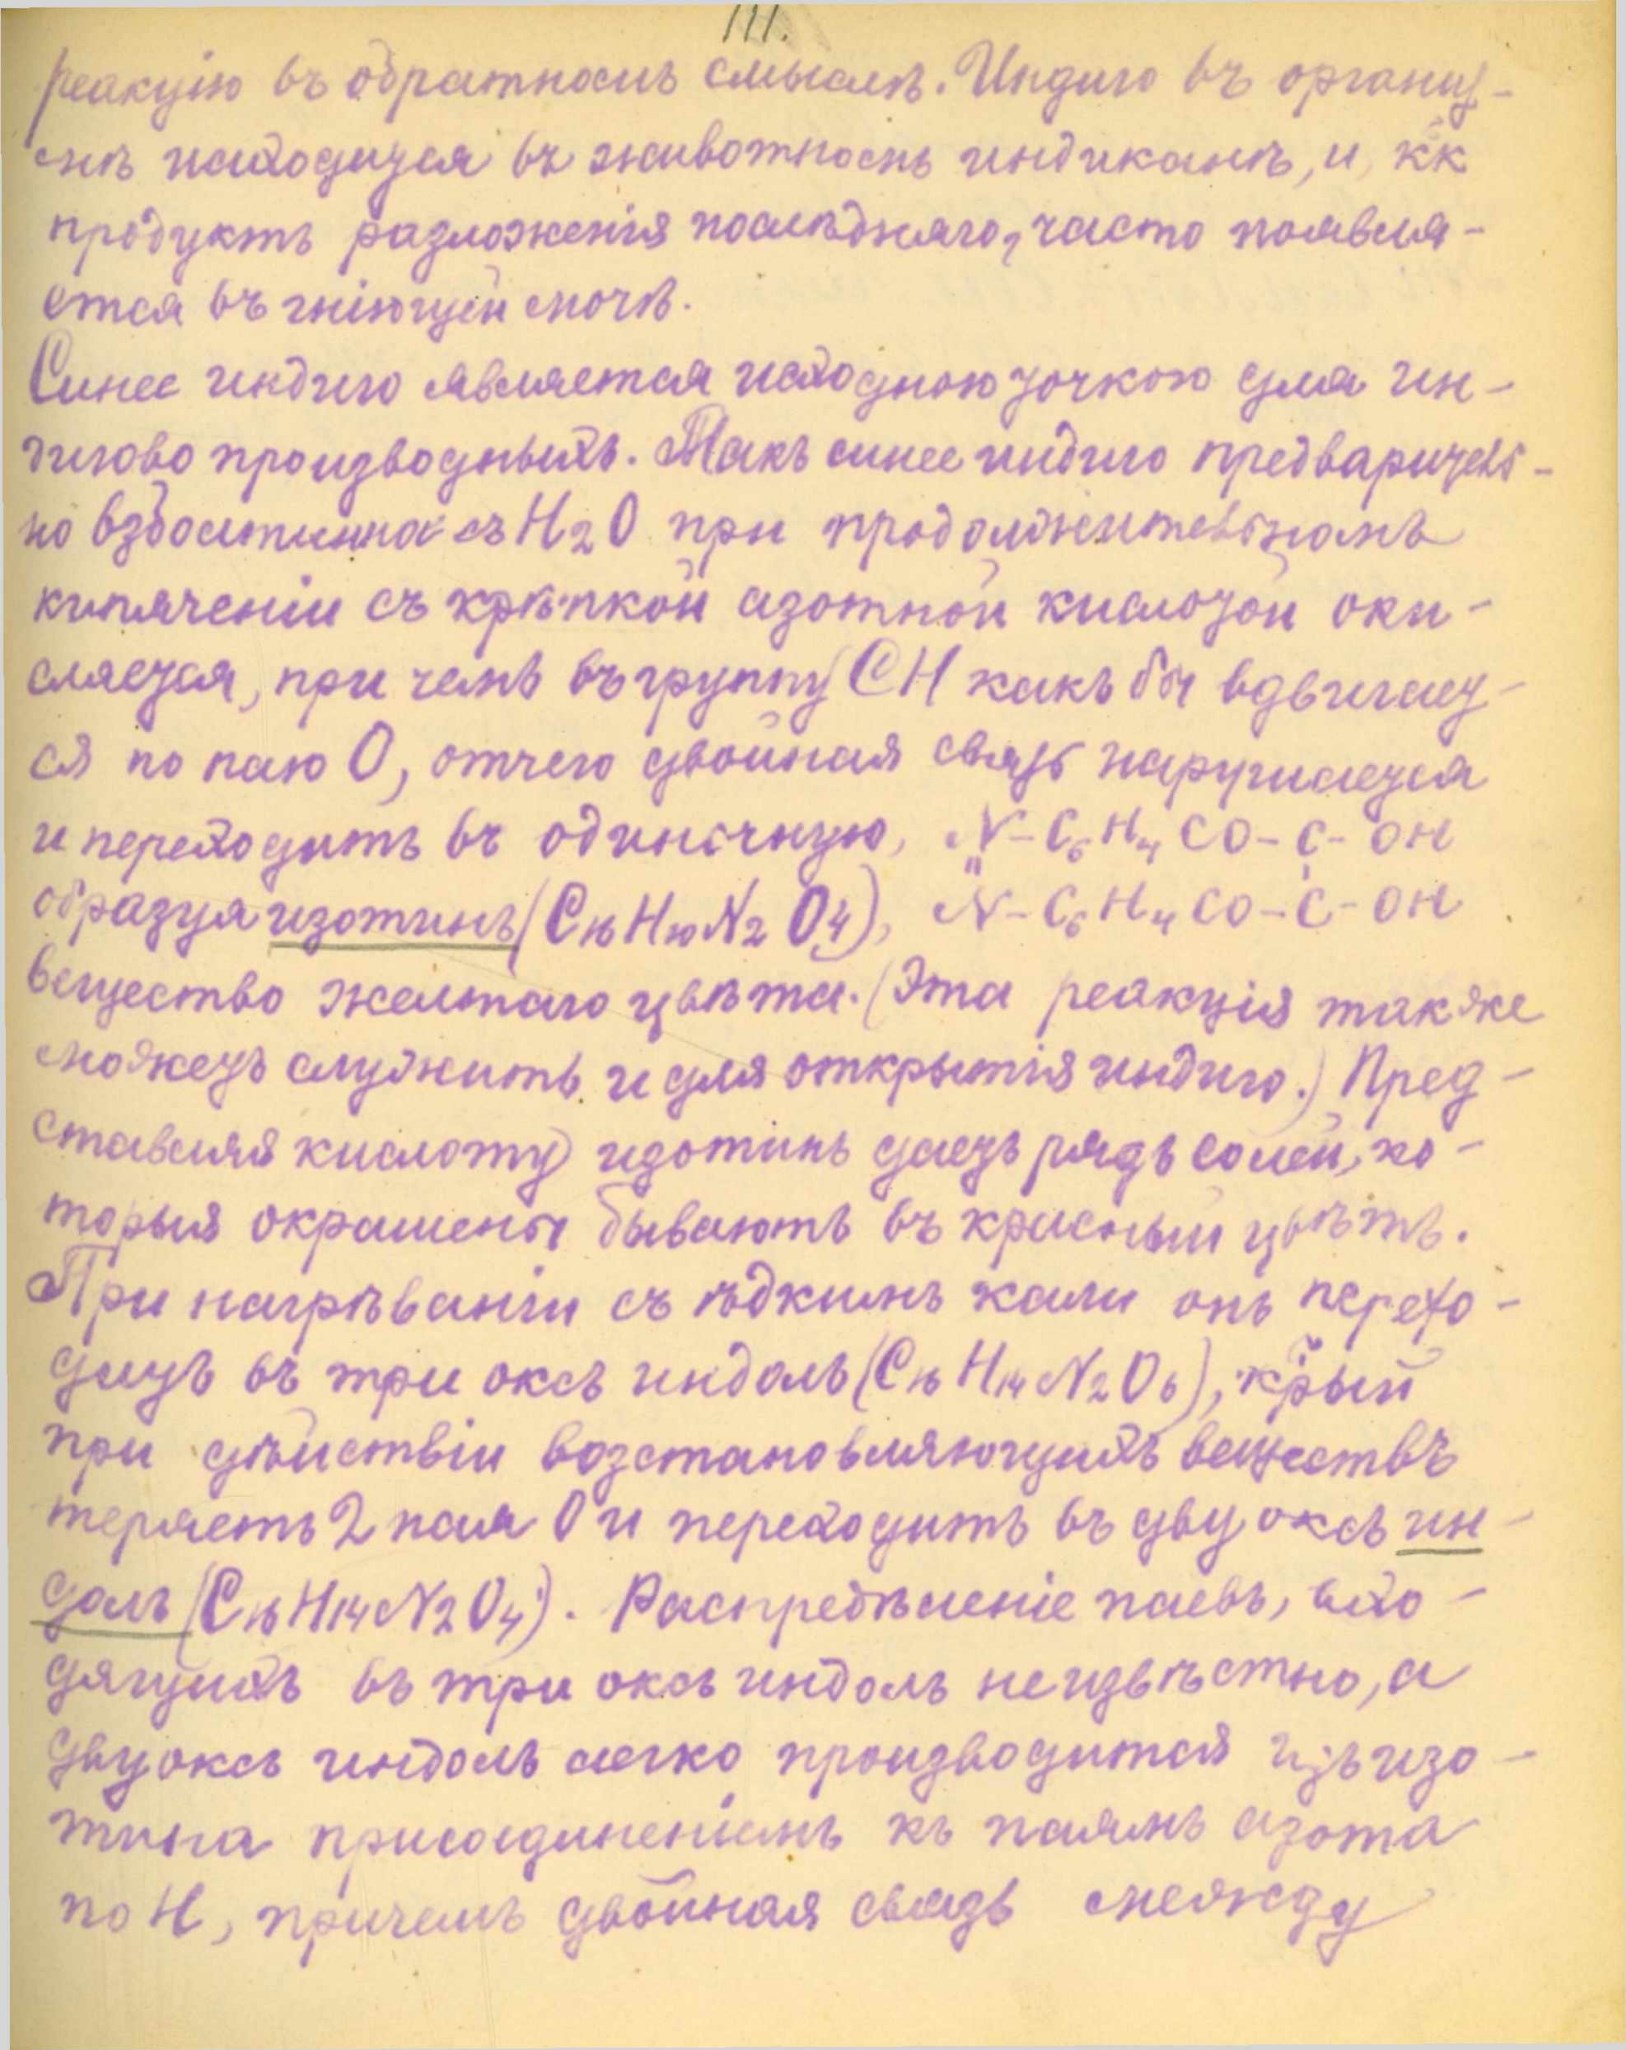 111.
реакцію въ обратномъ смыслѣ. Индиго въ организ-
мѣ находится въ животномъ индиканѣ, и, кк
продуктъ разложенія послѣдняго, часто появля-
ется въ гніющей мочѣ.
Синее индиго является исходною точкою для ин-
дигово производныхъ. Такъ синее индиго предваритель-
но взболтанна съ H₂O при продолжительномъ
кипяченіи съ крѣпкой азотной кислотой оки-
сляется, при чемъ въ группу CH какъ бы вдвигает-
ся по паю O, отчего двойная связь нарушается
и переходитъ въ одиночную, N-C₆H₄CO-C-OH
образуя изотинъ (C₁₆H₁₀N₂O₄), N-C₆H₄CO-C-OH
вещество желтаго цвѣта. (Эта реакція также
можетъ служить и для открытія индиго.) Пред-
ставляя кислоту изотинъ даетъ рядъ солей, ко-
торыя окрашены бываютъ въ красный цвѣтъ.
При нагрѣваніи съ ѣдкимъ кали онъ перехо-
дитъ въ три оксъ индолъ (C₁₆H₁₄N₂O₆), к̆рый
при дѣйствіи возстановляющихъ веществъ
теряетъ 2 пая O и переходитъ въ дву оксъ ин-
долъ (C₁₆H₁₄N₂O₄). Распредѣленіе паевъ, вхо-
дящихъ въ три оксъ индолъ неизвѣстно, а
двуоксъ индолъ легко производится изъ изо-
тина присоединеніемъ къ паямъ азота
по H, причемъ двойная связь между